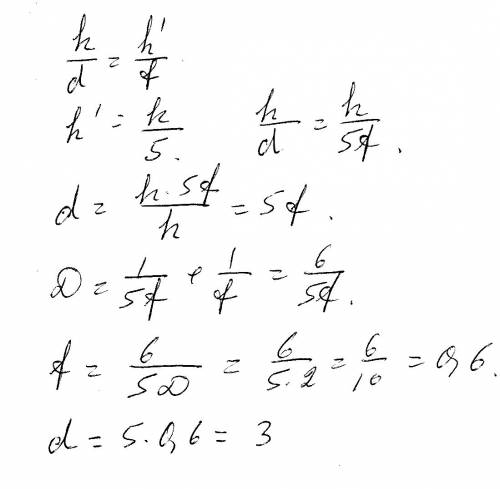 h/d = h'/f
h' = h/5. h/d = h/5f.
d = h·5f/h = 5f.
D = 1/5f + 1/f = 6/5f.
f = 6/5D = 6/5·2 = 6/10 = 0,6.
d = 5·0,6 = 3